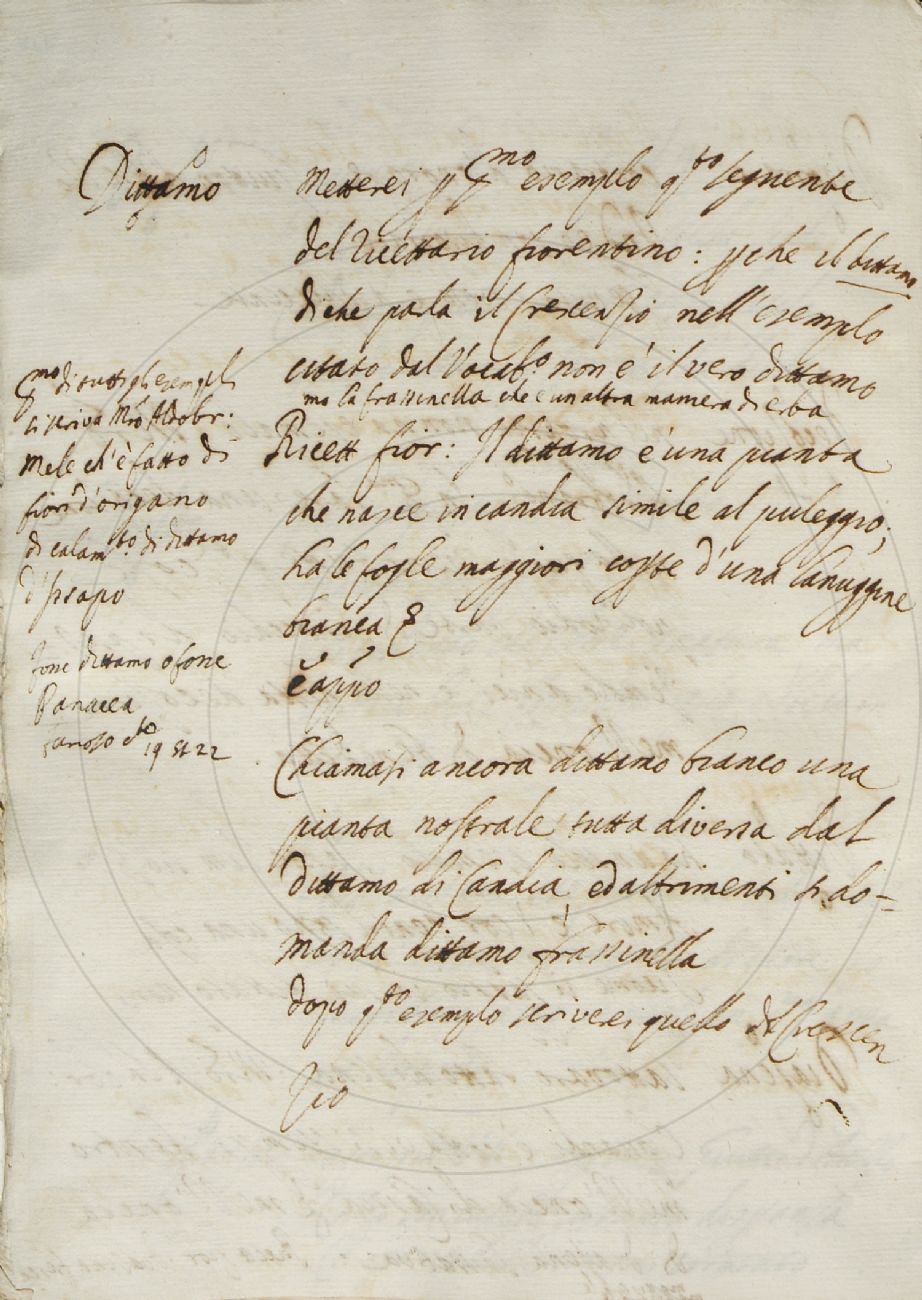 Dittamo
Metterei p. p.mo esempio q.to seguente
del Ricettario fiorentino: p che il dittamo
di che parla il Crescenzio nell'esempio
citato dal Vocab.o non è il vero dittamo
ma la frassinella che è un altra maniera di erba
Ricett fior: Il dittamo è una pianta
che nasce in candia simile al puleggio;
ha le foglie maggiori copte d'una lanuggine
bianca
E appo
Chiamasi ancora dittamo bianco una
pianta nostrale tutta diversa dal
dittamo di Candia, ed altrimenti si do-
manda dittamo frassinella
dopo q.to esempio scriverei quello del Crescen
zio
p.mo di tutti gli esempli
si scriva M.ro Aldobr:
Mele ch'è fatto di
fiori d'origano
di calam.to di dittamo
d'Isapo
fone dittamo o fone
Panacea
19 st 22